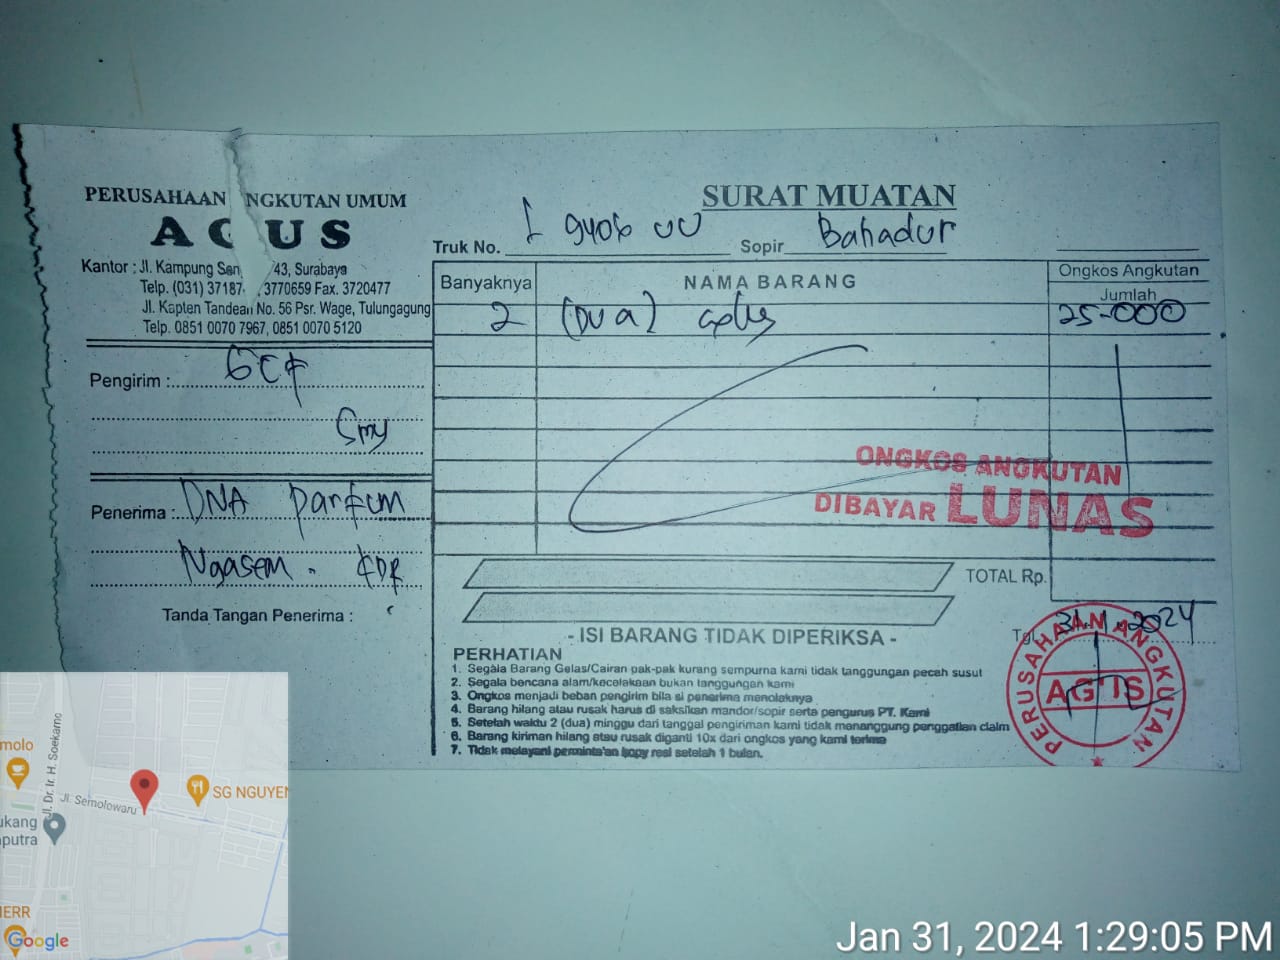 PERUSAHAAN ANGKUTAN UMUM
AGUS
Kantor : Jl. Kampung 43, Surabaya
Telp. (031) 37187 , 3770659 Fax. 3720477
Jl. Kapten Tandean No. 56 Psr. Wage, Tulungagung
Telp. 0851 0070 7967, 0851 0070 5120
SURAT MUATAN
Truk No. 9406 UU Sopir Bahadur
Pengirim :
Sby
Penerima : DNA Parfum
Ngasem . KDR
Tanda Tangan Penerima :
Banyaknya NAMA BARANG Ongkos Angkutan
Jumlah
2 (Dua) 25-000
ONGKOS ANGKUTAN
DIBAYAR LUNAS
TOTAL Rp.
- ISI BARANG TIDAK DIPERIKSA -
Tgl. 31.1.2024
PERHATIAN
1. Segala Barang Gelas/Cairan pak-pak kurang sempurna kami tidak tanggungan pecah susut
2. Segala bencana alam/kecelakaan bukan tanggungan kami
3. Ongkos menjadi beban pengirim bila si penerima menolaknya
4. Barang hilang atau rusak harus di saksikan mandor/sopir serta pengurus PT. Kami
5. Setelah waktu 2 (dua) minggu dari tanggal pengiriman kami tidak menanggung penggatian claim
6. Barang kiriman hilang atau rusak diganti 10x dari ongkos yang kami terima
7. Tidak melayani permintaan copy resi setelah 1 bulan.
PERUSAHAAN ANGKUTAN
AGUS
molo
Jl. Dr. Ir. H. Soekarno
Jl. Semolowaru
SG NGUYEN
ukang
aputra
IERR
Google
Jan 31, 2024 1:29:05 PM